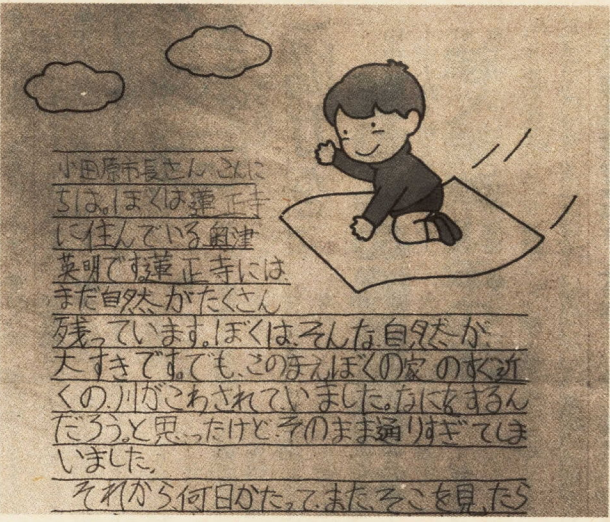 小田原市長さん こんに
ちは。ぼくは蓮正寺
に住んでいる奥津
英明です。蓮正寺には
まだ自然がたくさん
残っています。ぼくは、そんな自然が
大すきです。でも、このまえぼくの家のすぐ近
くの川がこわされていました。なにをするん
だろう。と思ったけど、そのまま通りすぎてしま
いました。
それから何日かたって、また、そこを見たら